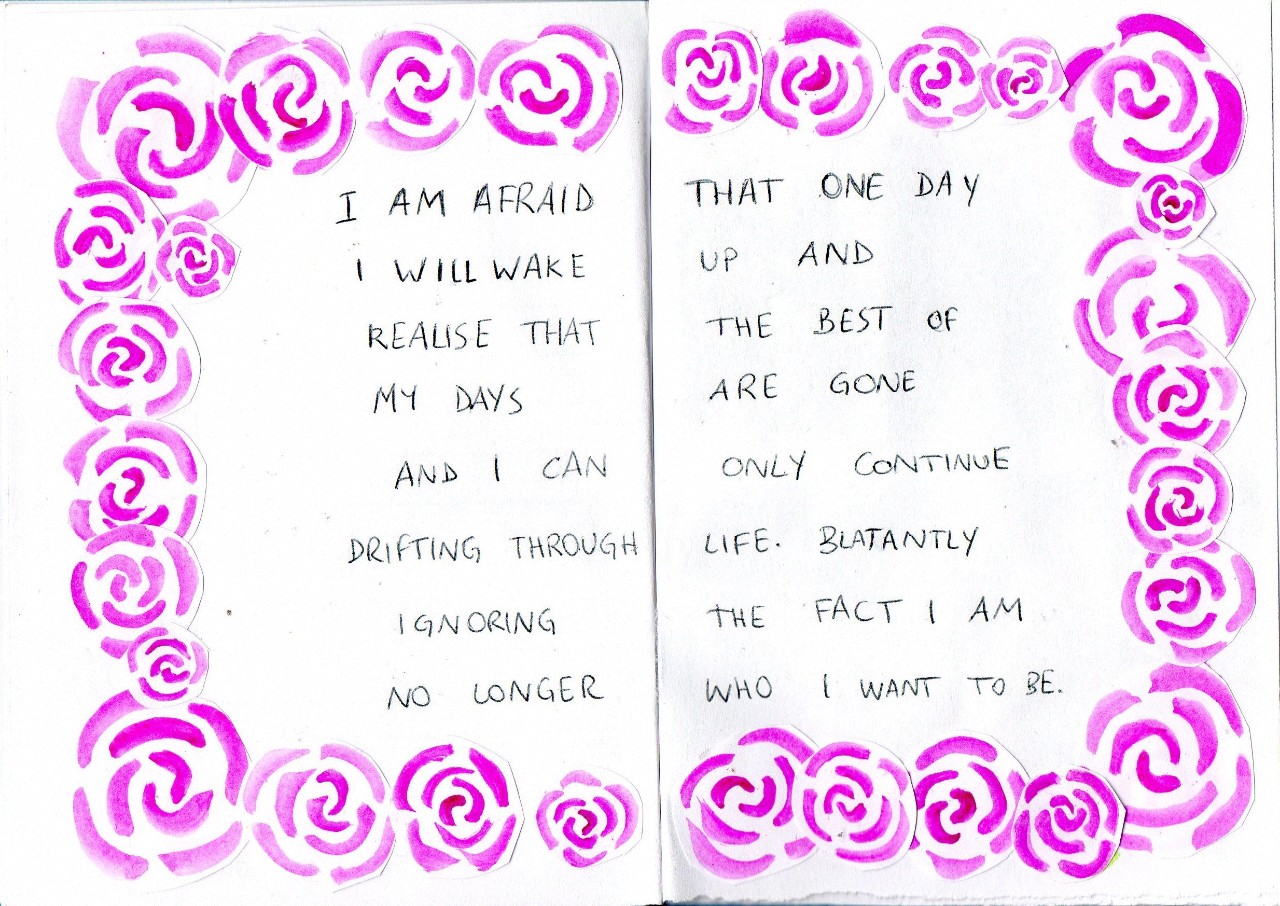 I AM AFRAID THAT ONE DAY
I WILL WAKE UP AND
REALISE THAT THE BEST OF
MY DAYS ARE GONE
AND I CAN ONLY CONTINUE
DRIFTING THROUGH LIFE. BLATANTLY
IGNORING THE FACT I AM
NO LONGER WHO I WANT TO BE.